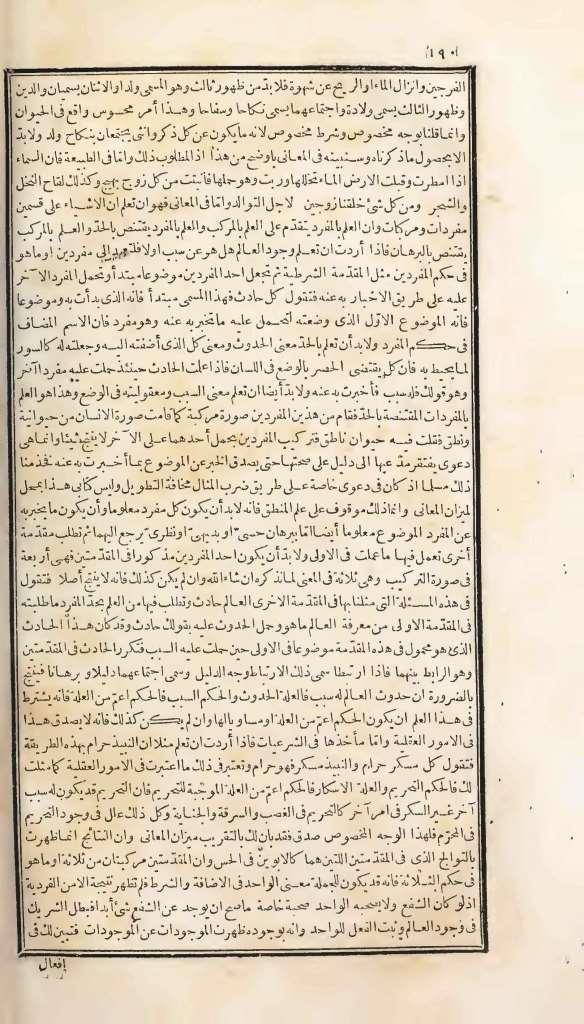 (١٩٠)
الفرجين وانزال الماء أو الريح عن شهوة فلا بد من ظهور ثالث وهو المسمى ولدا والاثنان يسميان والدين
وظهور الثالث يسمى ولادة واجتماعهما يسمى نكاحا وسفاحا وهذا أمر محسوس واقع فى الحيوان
وانما قلنا بوجه مخصوص وشرط مخصوص لانه ما يكون عن كل ذكر وانثى يجتمعان بنكاح ولد ولا بد
الا بحصول ما ذكرناه وسنبينه فى المعانى باوضح من هذا اذ المطلوب ذلك واما فى الطبيعة فان السماء
اذا امطرت وقبلت الارض الماء وربت وهو حملها فأنبتت من كل زوج بهيج وكذلك لقاح النخل
والشجر ومن كل شئ خلقنا زوجين لاجل التوالد واما فى المعانى فهو ان تعلم ان الاشياء على قسمين
مفردات ومركبات وان العلم بالمفرد يتقدم على العلم بالمركب والعلم بالمفرد يقتنص بالحد والعلم بالمركب
يقتنص بالبرهان فاذا أردت ان تعلم وجود العالم هل هو عن سبب اولا فلتعمد الى مفردين اوما هو
فى حكم المفردين مثل المقدمة الشرطية ثم تجعل احد المفردين موضوعا مبتدأ وتحمل المفرد الآخر
عليه على طريق الاخبار به عنه فتقول كل حادث فهذا المسمى مبتدأ فانه الذى بدأت به وموضوعا
فانه الموضوع الاول الذى وضعته لتحمل عليه ما تخبر به عنه وهو مفرد فان الاسم المضاف
فى حكم المفرد ولا بد أن تعلم بالحد معنى الحدوث ومعنى كل الذى أضفته اليه وجعلته له كالسور
لما يحيط به فان كل يقتضى الحصر بالوضع فى اللسان فاذا علمت الحادث حينئذ حملت عليه مفردا آخر
وهو قولك فله سبب فأخبرت به عنه ولا بد أيضا ان تعلم معنى السبب ومعقوليته فى الوضع وهذا هو العلم
بالمفردات المقتنصة بالحد فقام من هذين المفردين صورة مركبة كما قامت صورة الانسان من حيوانية
ونطق فقلت فيه حيوان ناطق فتركيب المفردين بحمل أحدهما على الآخر لا ينتج شيئا وانما هى
دعوى يفتقر مدعيها الى دليل على صحتها حتى يصدق الخبر عن الموضوع بما أخبرت به عنه فخذ منا
ذلك مسلما اذ كان فى دعوى خاصة على طريق ضرب المثال مخافة التطويل وليس كتابى هذا بمحل
لميزان المعانى وانما ذلك موقوف على علم المنطق فانه لا بد أن يكون كل مفرد معلوما وأن يكون ما يخبر به
عن المفرد الموضوع معلوما أيضا اما ببرهان حسى اوبديهى اونظرى يرجع اليهما ثم تطلب مقدمة
أخرى تعمل فيها ما عملت فى الاولى ولا بد أن يكون احد المفردين مذكورا فى المقدمتين فهى أربعة
فى صورة التركيب وهى ثلاثة فى المعنى لما نذكره ان شاء الله وان لم يكن كذلك فانه لا ينتج أصلا فتقول
فى هذه المسئلة التى مثلنا بها فى المقدمة الاخرى العالم حادث وتطلب فيها من العلم بحد المفرد ما طلبته
فى المقدمة الاولى من معرفة العالم ما هو وحمل الحدوث عليه بقولك حادث وقد كان هذا الحادث
الذى هو محمول فى هذه المقدمة موضوعا فى الاولى حين حملت عليه السبب فتكرر الحادث فى المقدمتين
وهو الرابط بينهما فاذا ارتبطا سمى ذلك الارتباط وجه الدليل وسمى اجتماعهما دليلا وبرهانا فينتج
بالضرورة ان حدوث العالم له سبب فالعلة الحدوث والحكم السبب فالحكم اعم من العلة فانه يشترط
فى هذا العلم ان يكون الحكم اعم من العلة او مساويا لها وان لم يكن كذلك فانه لا يصدق هذا
فى الامور العقلية واما مأخذها فى الشرعيات فاذا أردت ان تعلم مثلا ان النبيذ حرام بهذه الطريقة
فتقول كل مسكر حرام والنبيذ مسكر فهو حرام وتعتبر فى ذلك ما اعتبرت فى الامور العقلية كما مثلت
لك فالحكم التحريم والعلة الاسكار فالحكم اعم من العلة الموجبة للتحريم فان التحريم قد يكون له سبب
آخر غير السكر فى امر آخر كالتحريم فى الغصب والسرقة والجناية وكل ذلك علل فى وجود التحريم
فى المحرم فلهذا الوجه المخصوص صدق فقد بان لك بالتقريب ميزان المعانى وان النتائج انما ظهرت
بالتوالج الذى فى المقدمتين اللتين هما كالابوين فى الحس وان المقدمتين مركبتان من ثلاثة اوما هو
فى حكم الثلاثة فانه قد يكون للجملة معنى الواحد فى الاضافة والشرط فلم تظهر نتيجة الامن الفردية
اذ لو كان الشفع ولا يصحبه الواحد صحبة خاصة ما صح ان يوجد عن الشفع شئ أبدا فبطل الشريك
فى وجود العالم وثبت الفعل للواحد وانه بوجوده ظهرت الموجودات عن الموجودات فتبين لك فى
افعال